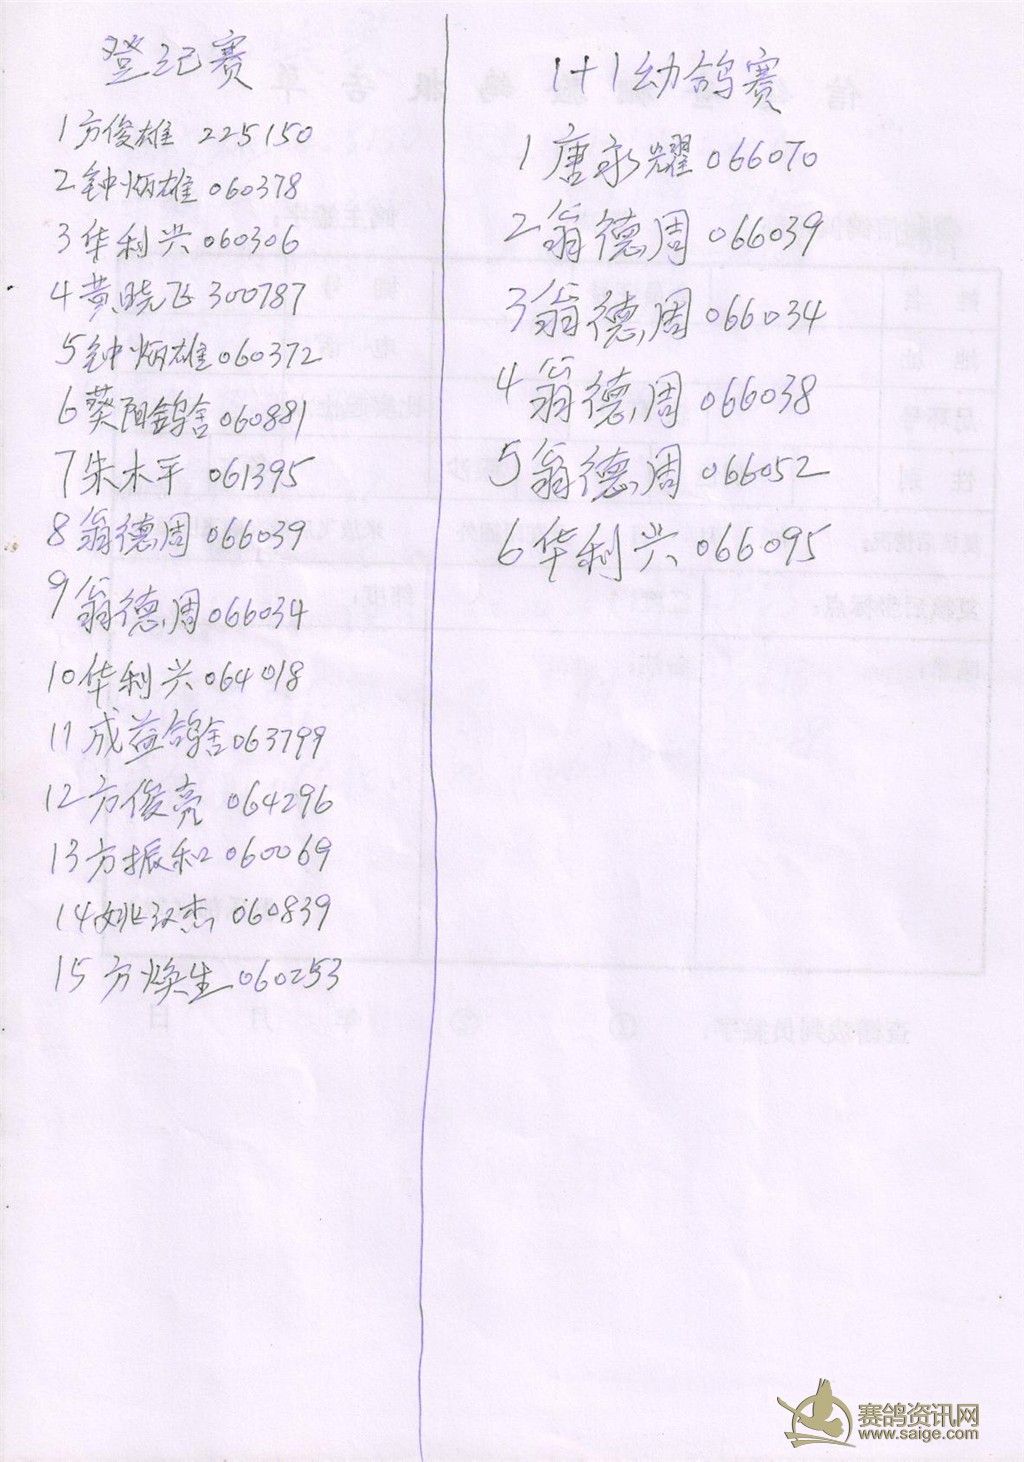 登记赛
1 方俊雄 225150
2 钟炳雄 060378
3 华利兴 060306
4 黄晓飞 300787
5 钟炳雄 060372
6 葵阳鸽舍 060881
7 朱木平 061395
8 翁德周 066039
9 翁德周 066034
10 华利兴 064018
11 成益鸽舍 063799
12 方俊亮 064296
13 方振和 060069
14 姚汉杰 060839
15 方焕生 060253
1+1幼鸽赛
1 唐永耀 066070
2 翁德周 066039
3 翁德周 066034
4 翁德周 066038
5 翁德周 066052
6 华利兴 066095
赛鸽资讯网
www.saige.com